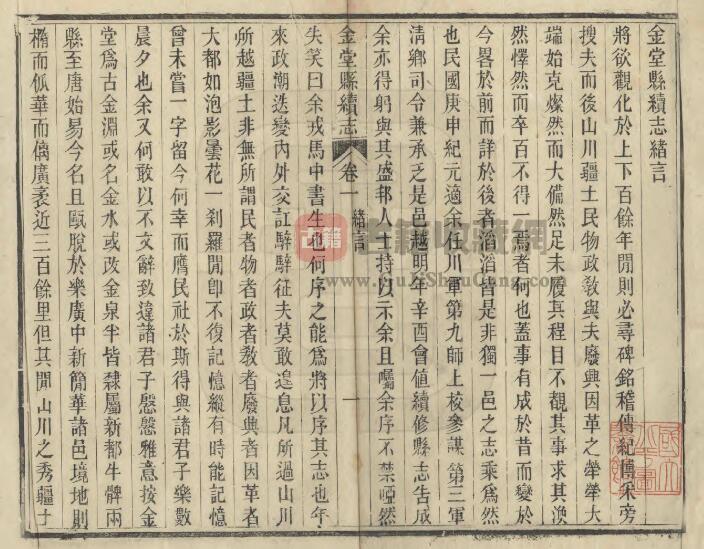 金堂縣續志緒言
將欲觀化於上下百餘年閒則必尋碑銘稽傳紀博采旁
搜夫而後山川疆土民物政敎與夫廢興因革之犖犖大
端始克燦然而大備然足未履其程目不覩其事求其渙
然懌然而卒百不得一焉者何也蓋事有成於昔而變於
今畧於前而詳於後者滔滔皆是非獨一邑之志乘爲然
也民國庚申紀元適余任川軍第九師上校參謀第三軍
淸鄉司令兼承乏是邑越明年辛酉會値續修縣志告成
余亦得躬與其盛邦人士持以示余且囑余序不禁啞然
金堂縣續志 卷一 緒言 一
失笑曰余戎馬中書生也何序之能爲將以序其志也年
來政潮迭變內外交訌騂騂征夫莫敢遑息凡所過山川
所越疆土非無所謂民者物者政者敎者廢興者因革者
大都如泡影曇花一刹羅閒卽不復記憶縱有時能記憶
曾未嘗一字留今何幸而膺民社於斯得與諸君子樂數
晨夕也余又何敢以不文辭致違諸君子慇慇雅意按金
堂爲古金淵或名金水或改金泉半皆隸屬新都牛髀兩
縣至唐始易今名且甌脫於樂廣中新簡華諸邑境地則
橢而佤華而僪廣袤近三百餘里但其閒山川之秀疆土
古籍
古籍收藏網
www.GuJiShouCang.com